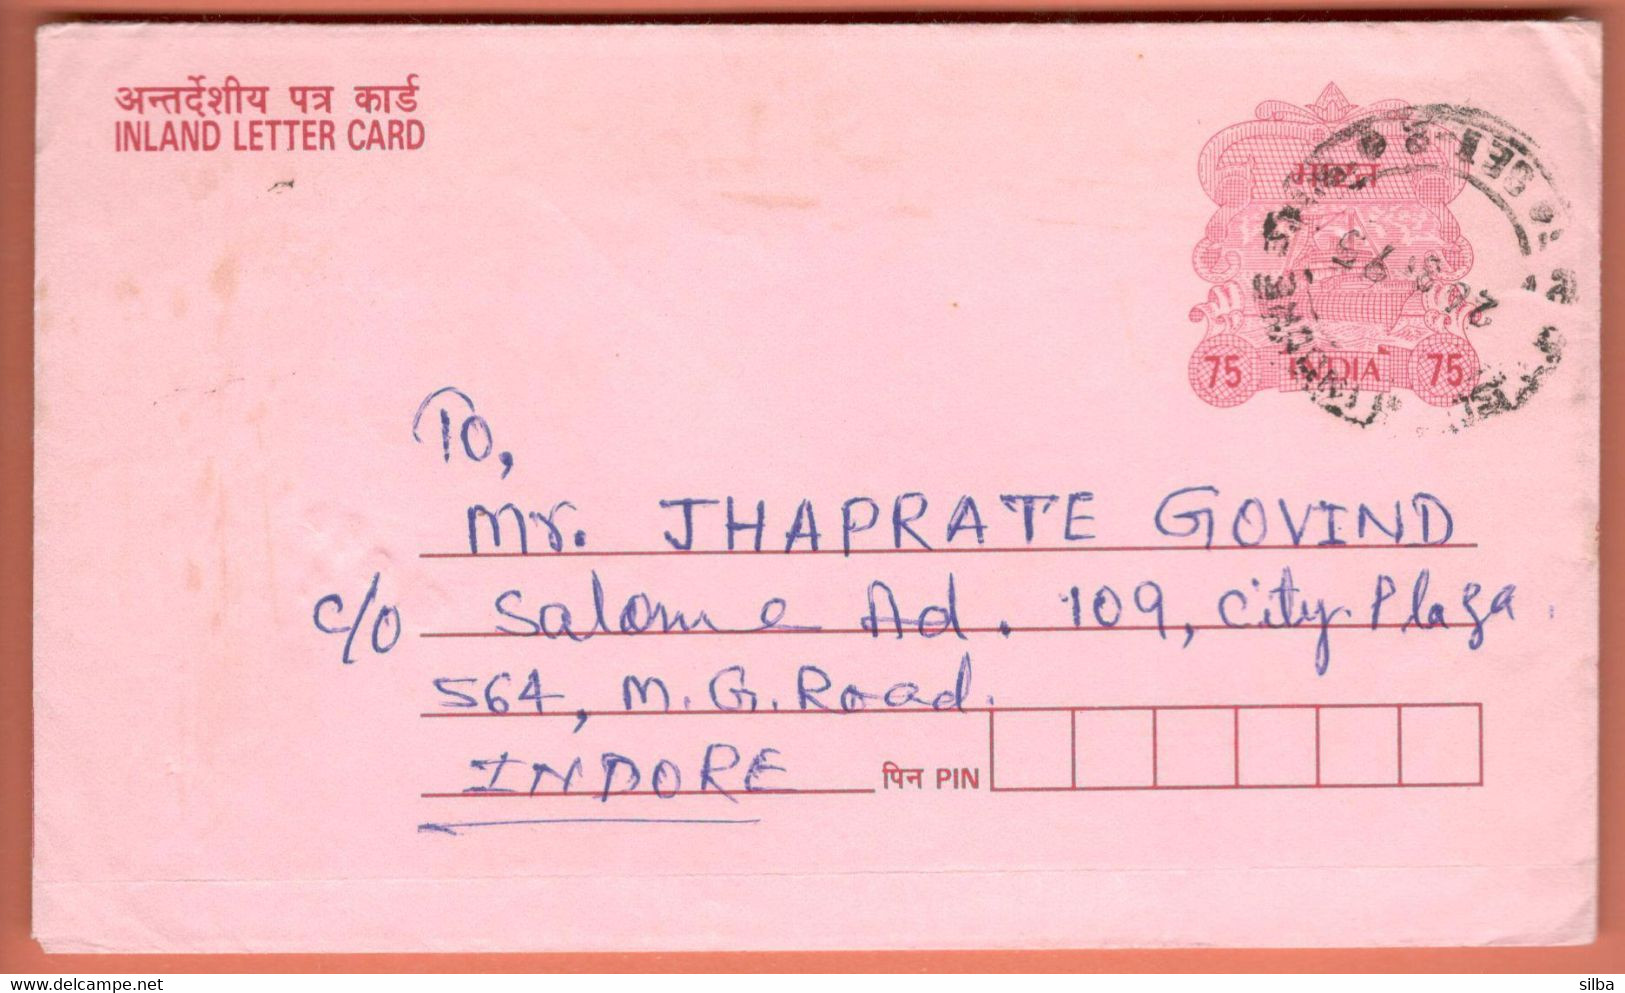 अन्तर्देशीय पत्र कार्ड
INLAND LETTER CARD
भारत
75 INDIA 75
To,
Mr. JHAPRATE GOVIND
c/o Salome Ad. 109, City Plaza
564, M. G. Road.
INDORE
पिन PIN
silba